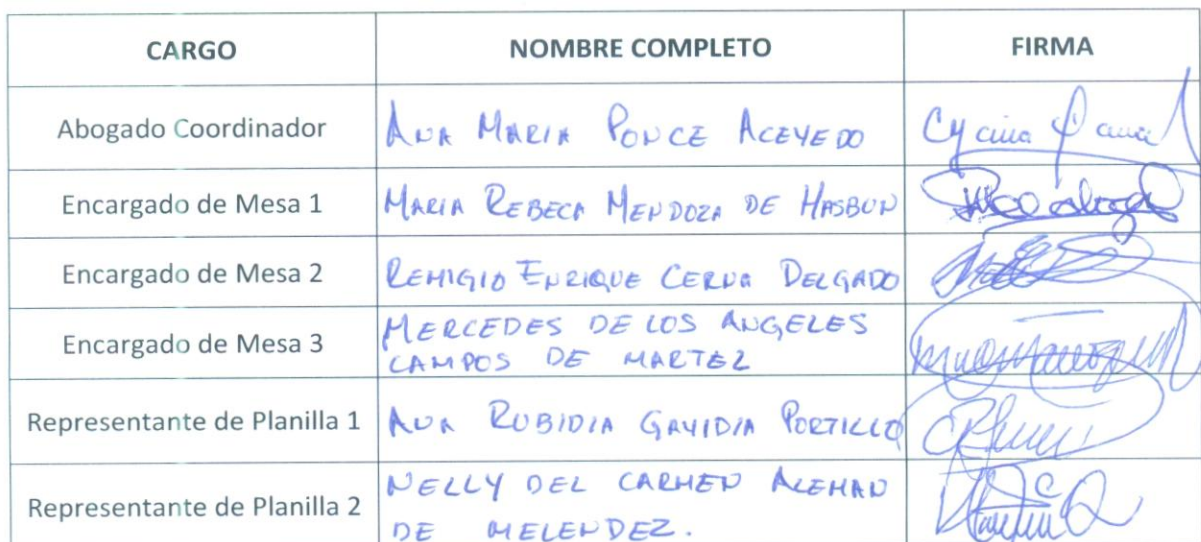 CARGO NOMBRE COMPLETO FIRMA
Abogado Coordinador ANA MARIA PONCE ACEVEDO
Encargado de Mesa 1 MARIA REBECA MENDOZA DE HASBUN
Encargado de Mesa 2 REMIGIO ENRIQUE CERNA DELGADO
Encargado de Mesa 3 MERCEDES DE LOS ANGELES
CAMPOS DE MARTEZ
Representante de Planilla 1 ANA RUBIDIA GAVIDIA PORTILLO
Representante de Planilla 2 NELLY DEL CARMEN ALEMAN
DE MELENDEZ.